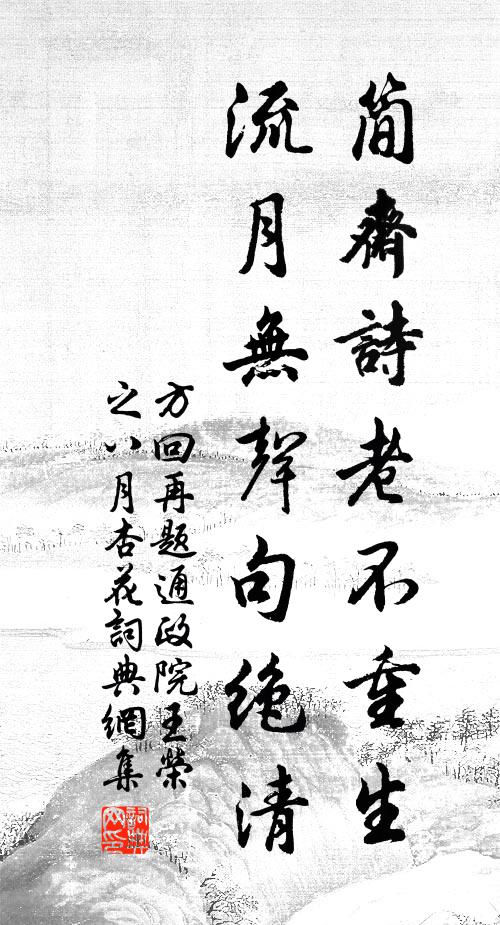 简齋詩老不重生
流月無聲句絶清
方回再题通政院王榮
之八月杏花詞典網集